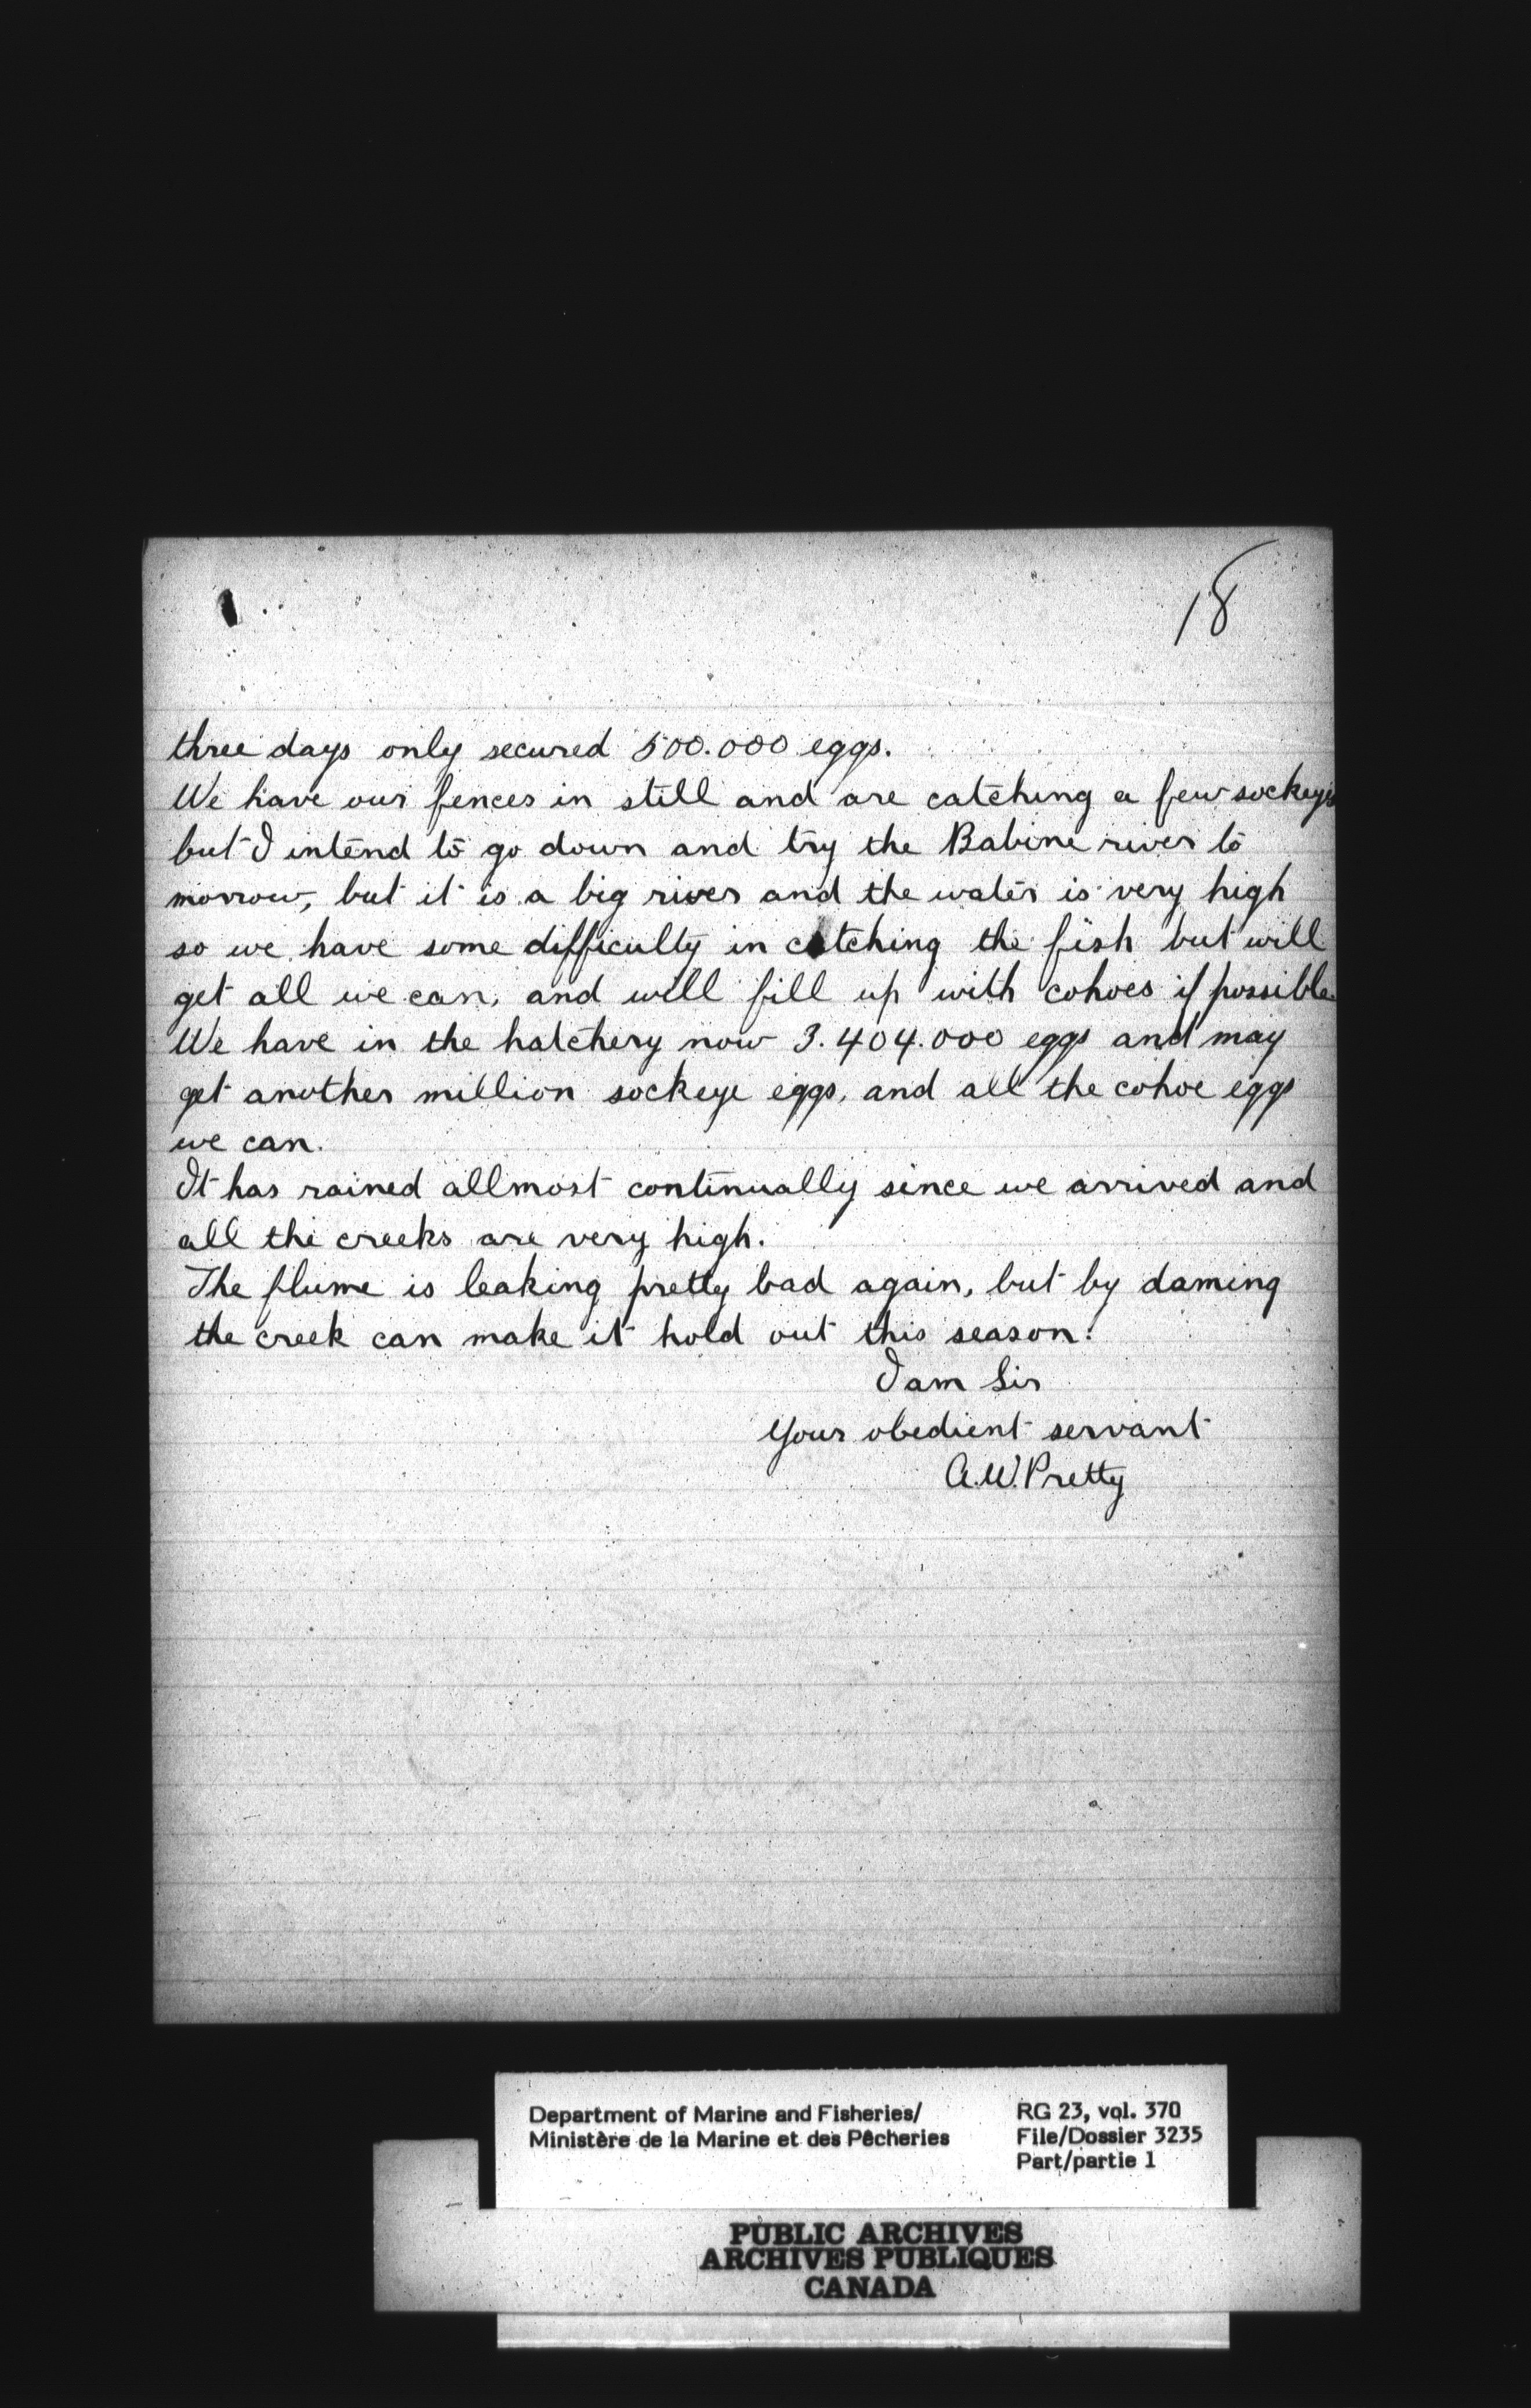 18
three days only secured 500.000 eggs.
We have our fences in still and are catching a few sockeyes
but I intend to go down and try the Babine river to
morrow, but it is a big river and the water is very high
so we have some difficulty in catching the fish but will
get all we can, and will fill up with cohoes if possible.
We have in the hatchery now 3.404.000 eggs and may
get another million sockeye eggs, and all the cohoe eggs
we can.
It has rained allmost continually since we arrived and
all the creeks are very high.
The flume is leaking pretty bad again, but by daming
the creek can make it hold out this season.
I am Sir
Your obedient servant
A.W. Pretty
Department of Marine and Fisheries/ RG 23, vol. 370
Ministère de la Marine et des Pêcheries File/Dossier 3235
Part/partie 1
PUBLIC ARCHIVES
ARCHIVES PUBLIQUES
CANADA